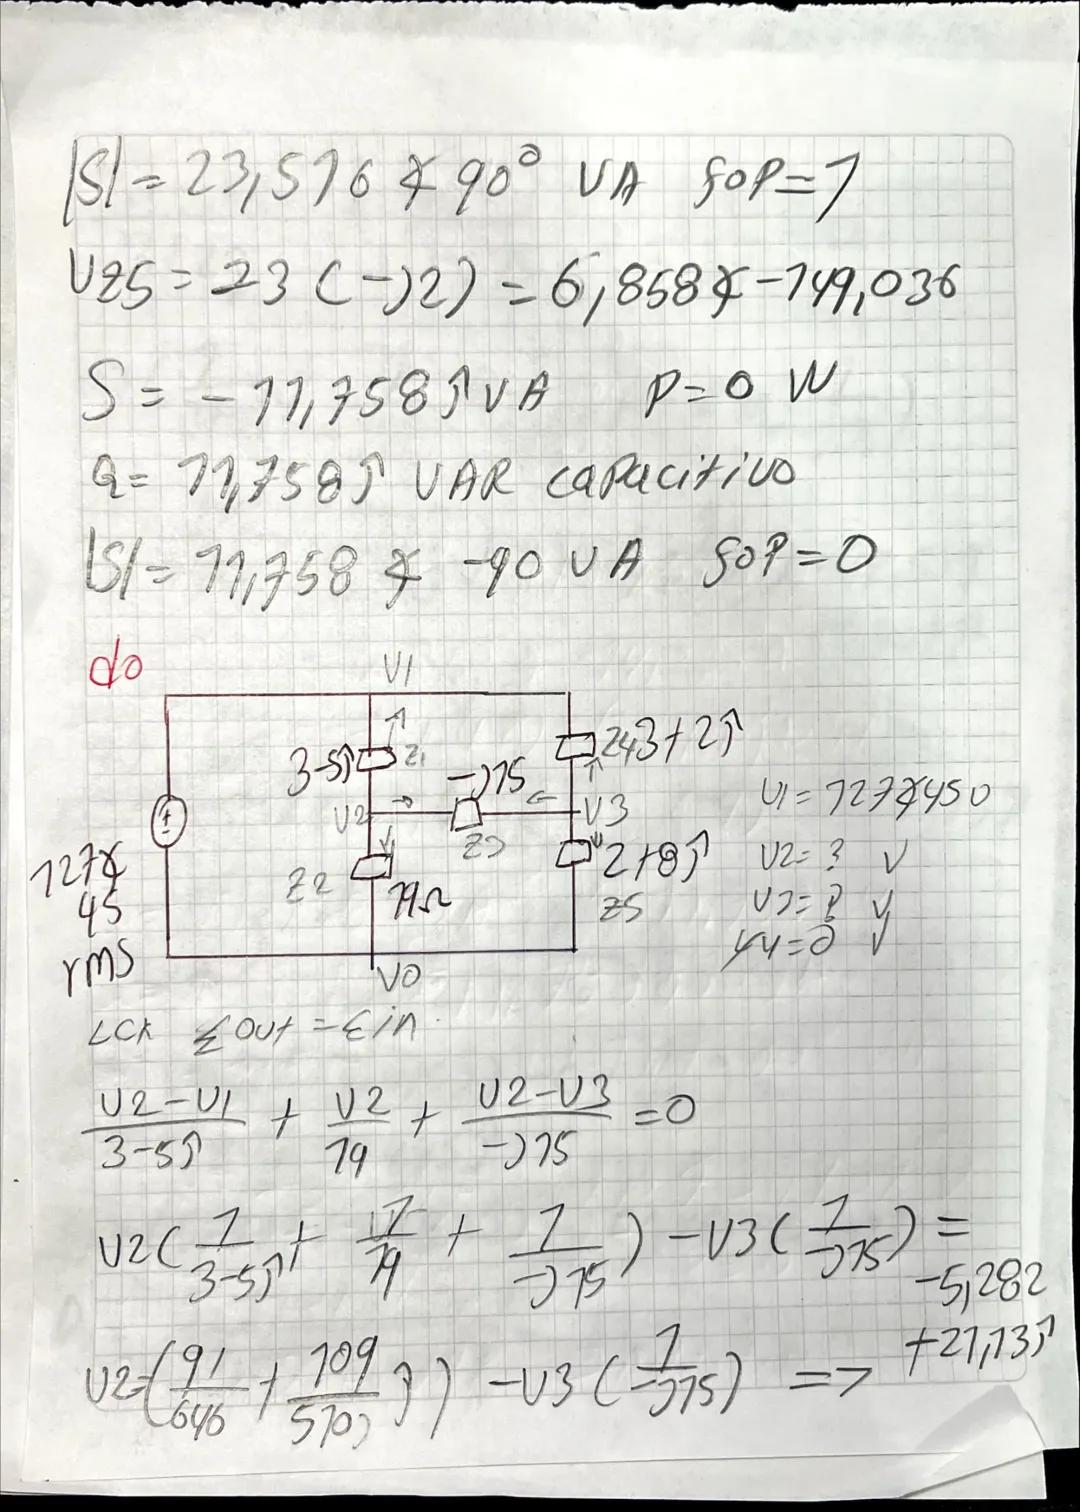 |S| = 23,516 ∡ 90° VA fop=1
VZ5 = I3 (-j2) = 6,858∡-149,036
S = -11,758 j VA P=0 W
Q= 11,758 j VAR capacitivo
|S| = 11,758 ∡ -90 VA fop=0
do V1
3-5j Z1 Z4 3+2j
-j15
V1 = 127∡45º
V2 Z3 V3
V2= ? V
127∡ 45 rms
Z2 19Ω
2+8j Z5
V3=? V
V4=0 V
V0
LCK Σout = Σin
V2-V1/3-5j + V2/19 + V2-V3/-j15 =0
V2( 1/3-5j + 1/19 + 1/-j15 ) -V3( 1/-j15 ) = -5,282 +21,13j
V2( 91/646 + 109/510 j ) -V3 ( 1/-j15 ) =>